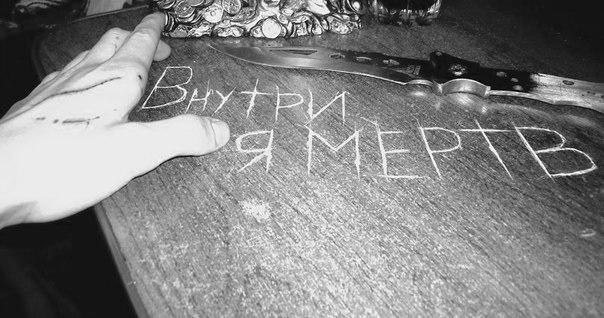 Внутри
я мертв